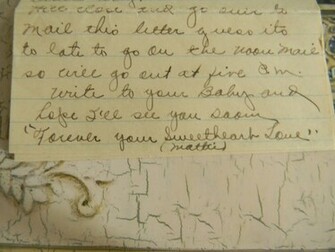 close and go
mail this letter guess its
to late to go on the noon mail
so will go out at five P.M.
Write to your Baby and
hope I'll see you soon,
"Forever your Sweetheart Love"
(Mattie)